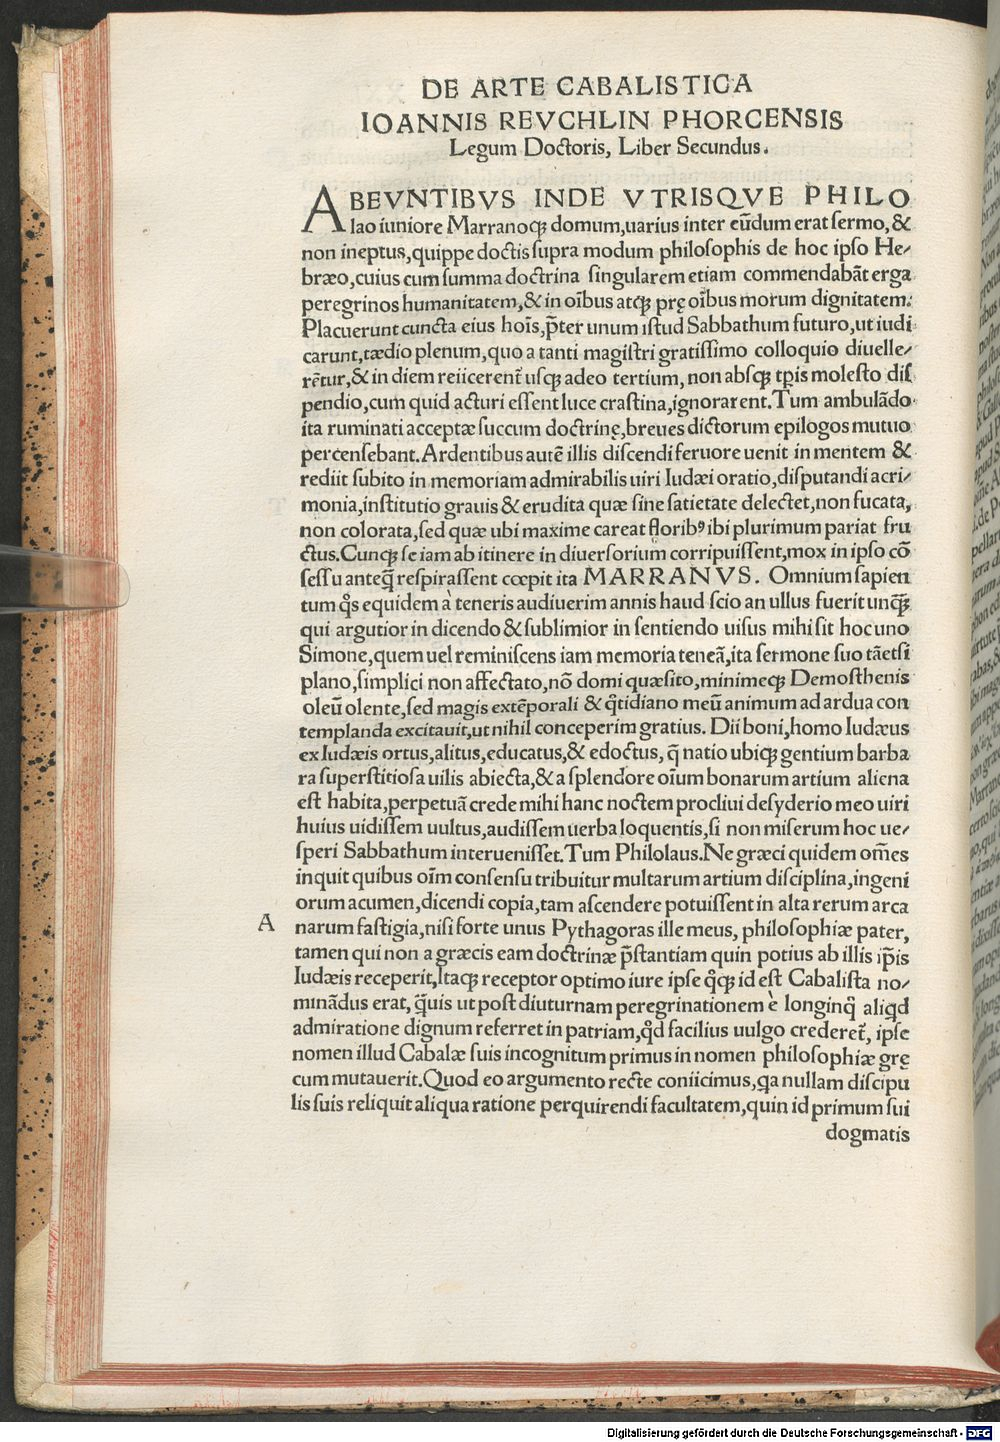 DE ARTE CABALISTICA
IOANNIS REVCHLIN PHORCENSIS
Legum Doctoris, Liber Secundus.
ABEVNTIBVS INDE VTRISQVE PHILO
lao iuniore Marranoqȝ domum,uarius inter eũdum erat ſermo,&
non ineptus,quippe doctis ſupra modum philoſophis de hoc ipſo He⸗
bræo,cuius cum ſumma doctrina ſingularem etiam commendabãt erga
peregrinos humanitatem,& in oĩbus atqȝ prę oĩbus morum dignitatem.
Placuerunt cuncta eius hoĩs,p̃ter unum iſtud Sabbathum futuro,ut iudi
carunt,tædio plenum,quo a tanti magiſtri gratiſſimo colloquio diuelle⸗
rẽtur,& in diem reiicerent̃ uſqȝ adeo tertium, non abſqȝ tp̃is moleſto diſ
pendio,cum quid acturi eſſent luce craſtina,ignorarent.Tum ambulãdo
ita ruminati acceptæ ſuccum doctrinę,breues dictorum epilogos mutuo
percenſebant.Ardentibus autẽ illis diſcendi feruore uenit in mentem &
rediit ſubito in memoriam admirabilis uiri Iudæi oratio,diſputandi acri⸗
monia,inſtitutio grauis & erudita quæ ſine ſatietate delectet,non fucata,
non colorata,ſed quæ ubi maxime careat floribꝰ ibi plurimum pariat fru
ctus.Cunqȝ ſe iam ab itinere in diuerſorium corripuiſſent,mox in ipſo cõ
ſeſſu anteq̃ reſpiraſſent cœpit ita MARRANVS. Omnium ſapien
tum q̊s equidem à teneris audiuerim annis haud ſcio an ullus fuerit unq̃ȝ
qui argutior in dicendo & ſublimior in ſentiendo uiſus mihi ſit hoc uno
Simone,quem uel reminiſcens iam memoria teneã,ita ſermone ſuo tãetſi
plano,ſimplici non affectato,nõ domi quæſito,minimeqȝ Demoſthenis
oleũ olente,ſed magis extẽporali & q̊tidiano meũ animum ad ardua con
templanda excitauit,ut nihil conceperim gratius. Dii boni,homo Iudæus
ex Iudæis ortus,alitus,educatus,& edoctus, q̃ natio ubiqȝ gentium barba
ra ſuperſtitioſa uilis abiecta,& a ſplendore oĩum bonarum artium aliena
eſt habita,perpetuã crede mihi hanc noctem procliui deſyderio meo uiri
huius uidiſſem uultus,audiſſem uerba loquentis,ſi non miſerum hoc ue⸗
ſperi Sabbathum interueniſſet.Tum Philolaus.Ne græci quidem om̃es
inquit quibus oĩm conſenſu tribuitur multarum artium diſciplina,ingeni
orum acumen,dicendi copia,tam aſcendere potuiſſent in alta rerum arca
A
narum faſtigia,niſi forte unus Pythagoras ille meus, philoſophiæ pater,
tamen qui non a græcis eam doctrinæ p̃ſtantiam quin potius ab illis ip̃is
Iudæis receperit,Itaqȝ receptor optimo iure ipſe q̊qȝ id eſt Cabaliſta no⸗
minãdus erat, q̃uis ut poſt diuturnam peregrinationem è longinq̃ aliqd
admiratione dignum referret in patriam,q̊d facilius uulgo crederet̃, ipſe
nomen illud Cabalæ ſuis incognitum primus in nomen philoſophiæ grę
cum mutauerit.Quod eo argumento recte coniicimus,qa nullam diſcipu
lis ſuis reliquit aliqua ratione perquirendi facultatem,quin id primum ſui
dogmatis
Digitalisierung gefördert durch die Deutsche Forschungsgemeinschaft - DFG